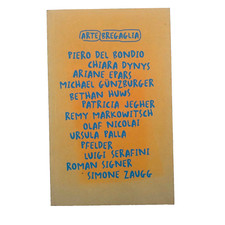 ARTE BREGAGLIA
PIERO DEL BONDIO
CHIARA DYNYS
ARIANE EPARS
MICHAEL GÜNZBURGER
BETHAN HUWS
PATRICIA JEGHER
REMY MARKOWITSCH
OLAF NICOLAI
URSULA PALLA
PFELDER
LUIGI SERAFINI
ROMAN SIGNER
SIMONE ZAUGG